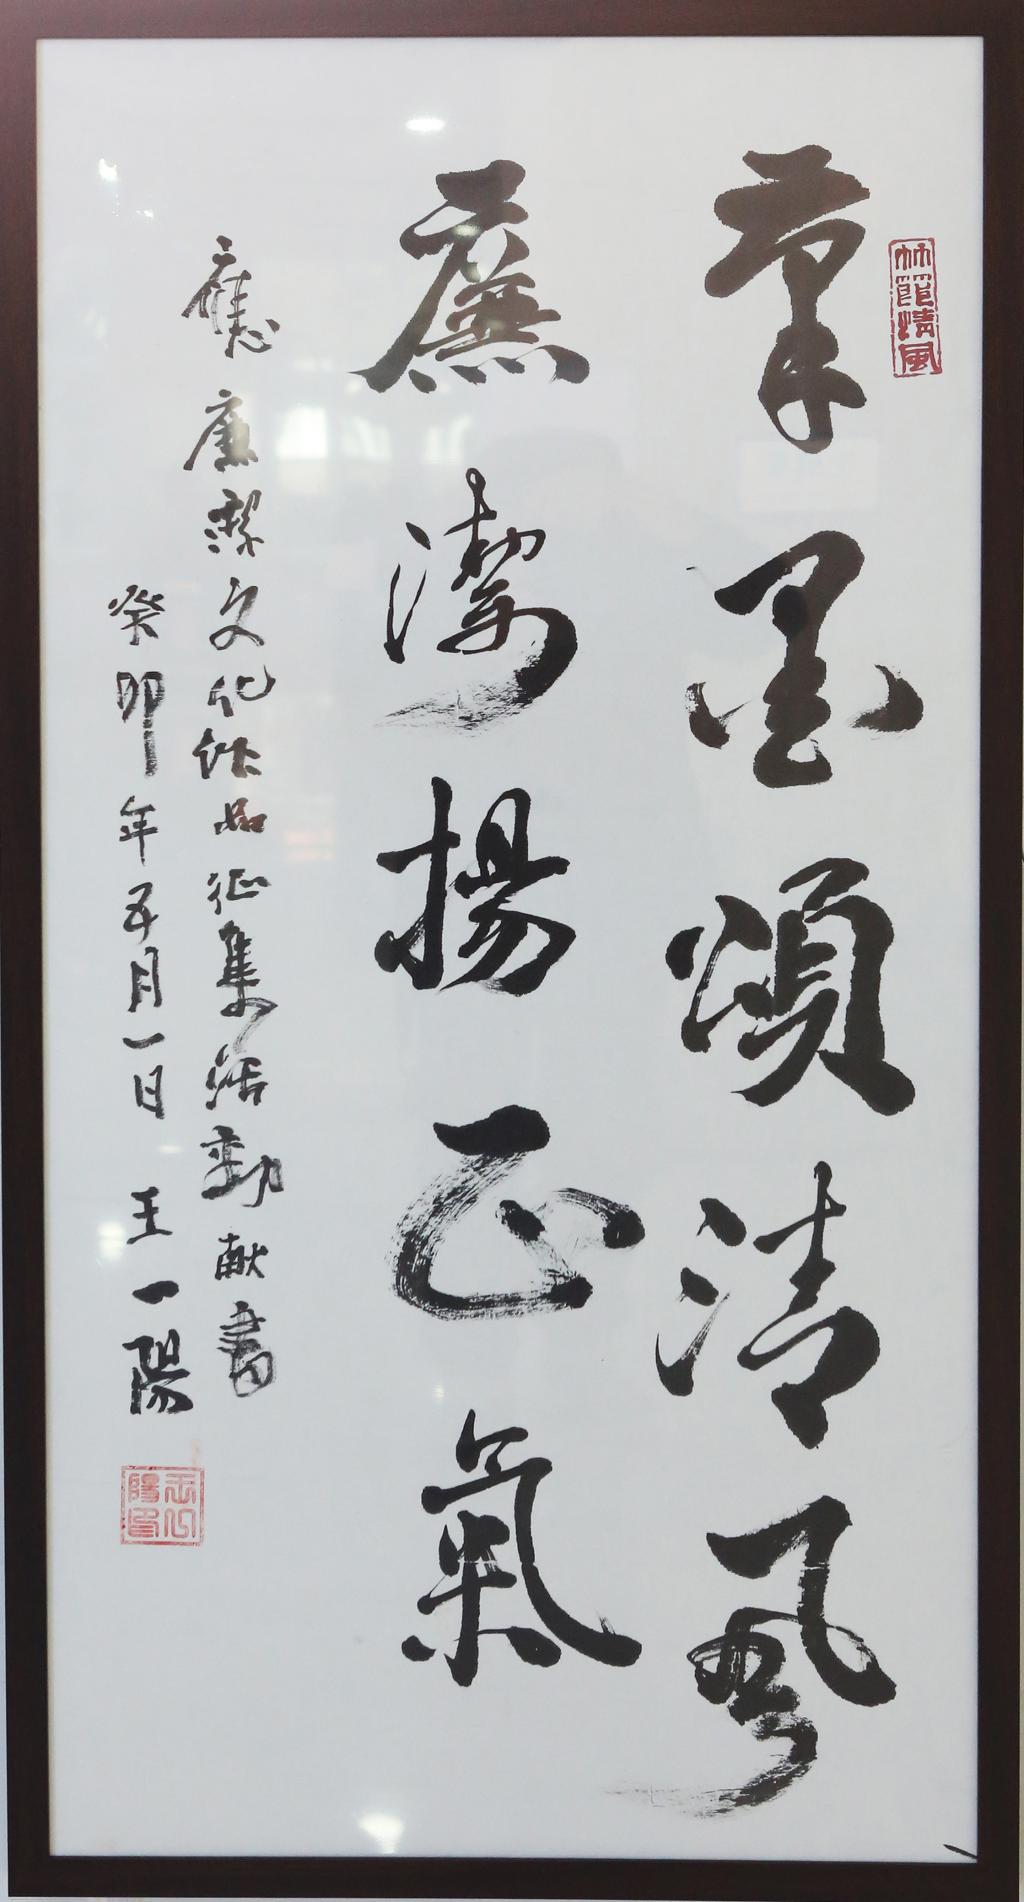 筆墨頌清風
廉潔揚正氣
應廉潔文化作品征集活動献書
癸卯年五月一日王一陽
竹館清風